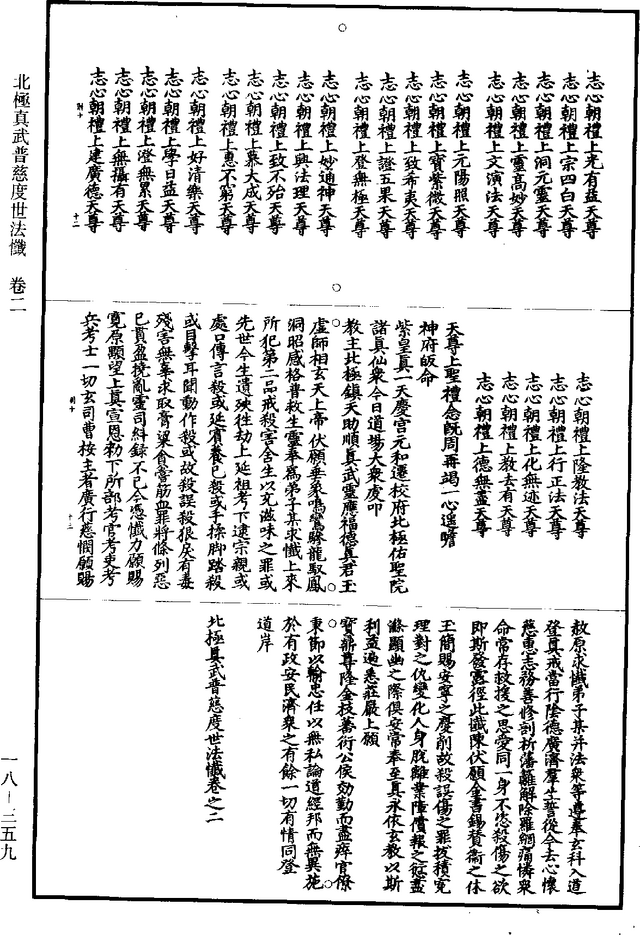 志心朝禮上光有益天尊
志心朝禮上宗四白天尊
志心朝禮上洞元靈天尊
志心朝禮上靈高妙天尊
志心朝禮上文演法天尊
志心朝禮上元陽照天尊
志心朝禮上寶紫微天尊
志心朝禮上致希夷天尊
志心朝禮上證五果天尊
志心朝禮上登無極天尊
志心朝禮上妙通神天尊
志心朝禮上興法理天尊
志心朝禮上致不殆天尊
志心朝禮上慕大成天尊
志心朝禮上惠不窮天尊
志心朝禮上好清樂天尊
志心朝禮上學日益天尊
志心朝禮上澄無累天尊
志心朝禮上無攝有天尊
志心朝禮上建廣德天尊
志心朝禮上隆教法天尊
志心朝禮上行正法天尊
志心朝禮上化無迹天尊
志心朝禮上教去有天尊
志心朝禮上德無盡天尊
天尊上聖禮念既周再竭一心遥瞻
神府皈命
紫皇真一天慶宫元和遷校府北極佑聖院
諸真仙衆今日道場大衆虔叩
教主北極鎮天助順真武靈應福德真君玉
虚師相玄天上帝伏願垂象鳴鸞驂龍馭鳳
洞昭感格普救生靈奉爲弟子某求懺上來
所犯第二品戒殺害含生以充滋味之罪或
先世今生遺殃往劫上延祖考下逮宗親或
處口傳言殺或延賓養已殺或手操脚踏殺
或目擊耳聞動作殺或故殺誤殺狠戾有毒
殘害無辜求取膏粱貪嗜筋血罪將條列惡
已貫盈撓亂靈司糾録不已今憑懺力願賜
寬原願望上真宣恩勑下所部考官考吏考
兵考士一切玄司曹桉主者廣行慈憫願賜
赦原求懺弟子某并法衆等遵奉玄科入道
登真戒當行陰德廣濟羣生誓從今去心懷
慈惠志務善修剖析藩籬解除羅網痛憐衆
命常存救援之思愛同一身不恣殺傷之欲
即斯發露徑此懺陳伏願金書錫賛衛之休
玉簡賜安寧之慶削故殺誤傷之罪拔積寃
理對之仇變化人身脱離業障償報之愆盡
滌顯幽之際俱安常奉至真永依玄教以斯
利益遍悉莊嚴上願
寶鼎尊隆金枝蕃衍公侯効勤而盡瘁官僚
秉節以輸忠任以無私論道經邦而無異施
於有政安民濟衆之有餘一切有情同登
道岸
北極真武普慈度世法懺卷之二
北極真武普慈度世法懺　卷二
一八—三五九